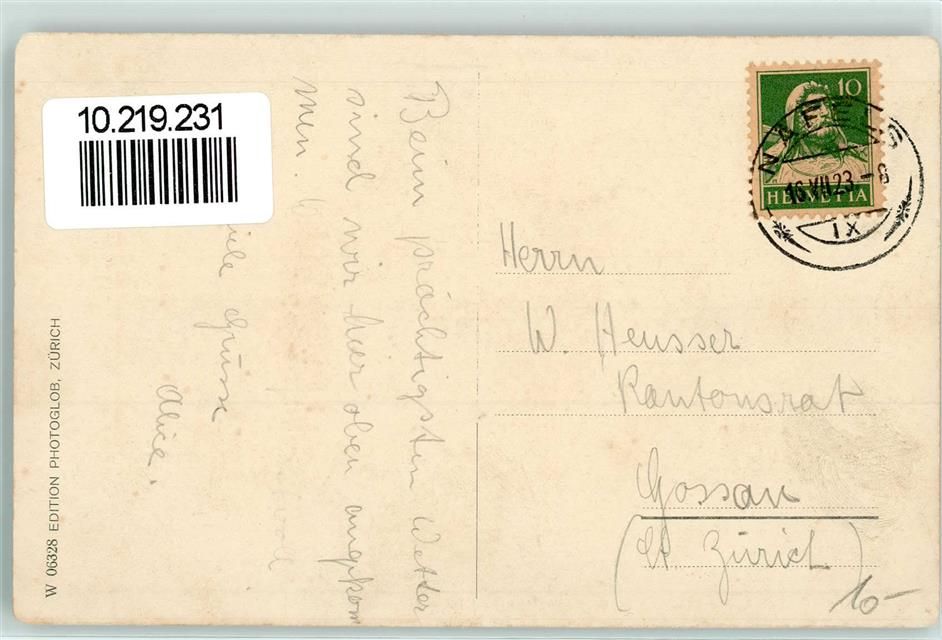 10.219.231
Beim prächtigsten Wetter
sind wir hier oben angekom
men.
viele Grüsse
Alice.
W 06328 EDITION PHOTOGLOB, ZÜRICH
10
HELVETIA
NÄFELS
16.VII.23-8
IX
Herrn
W. Heusser
Kantonsrat
Gossau
(Kt. Zürich)
10-